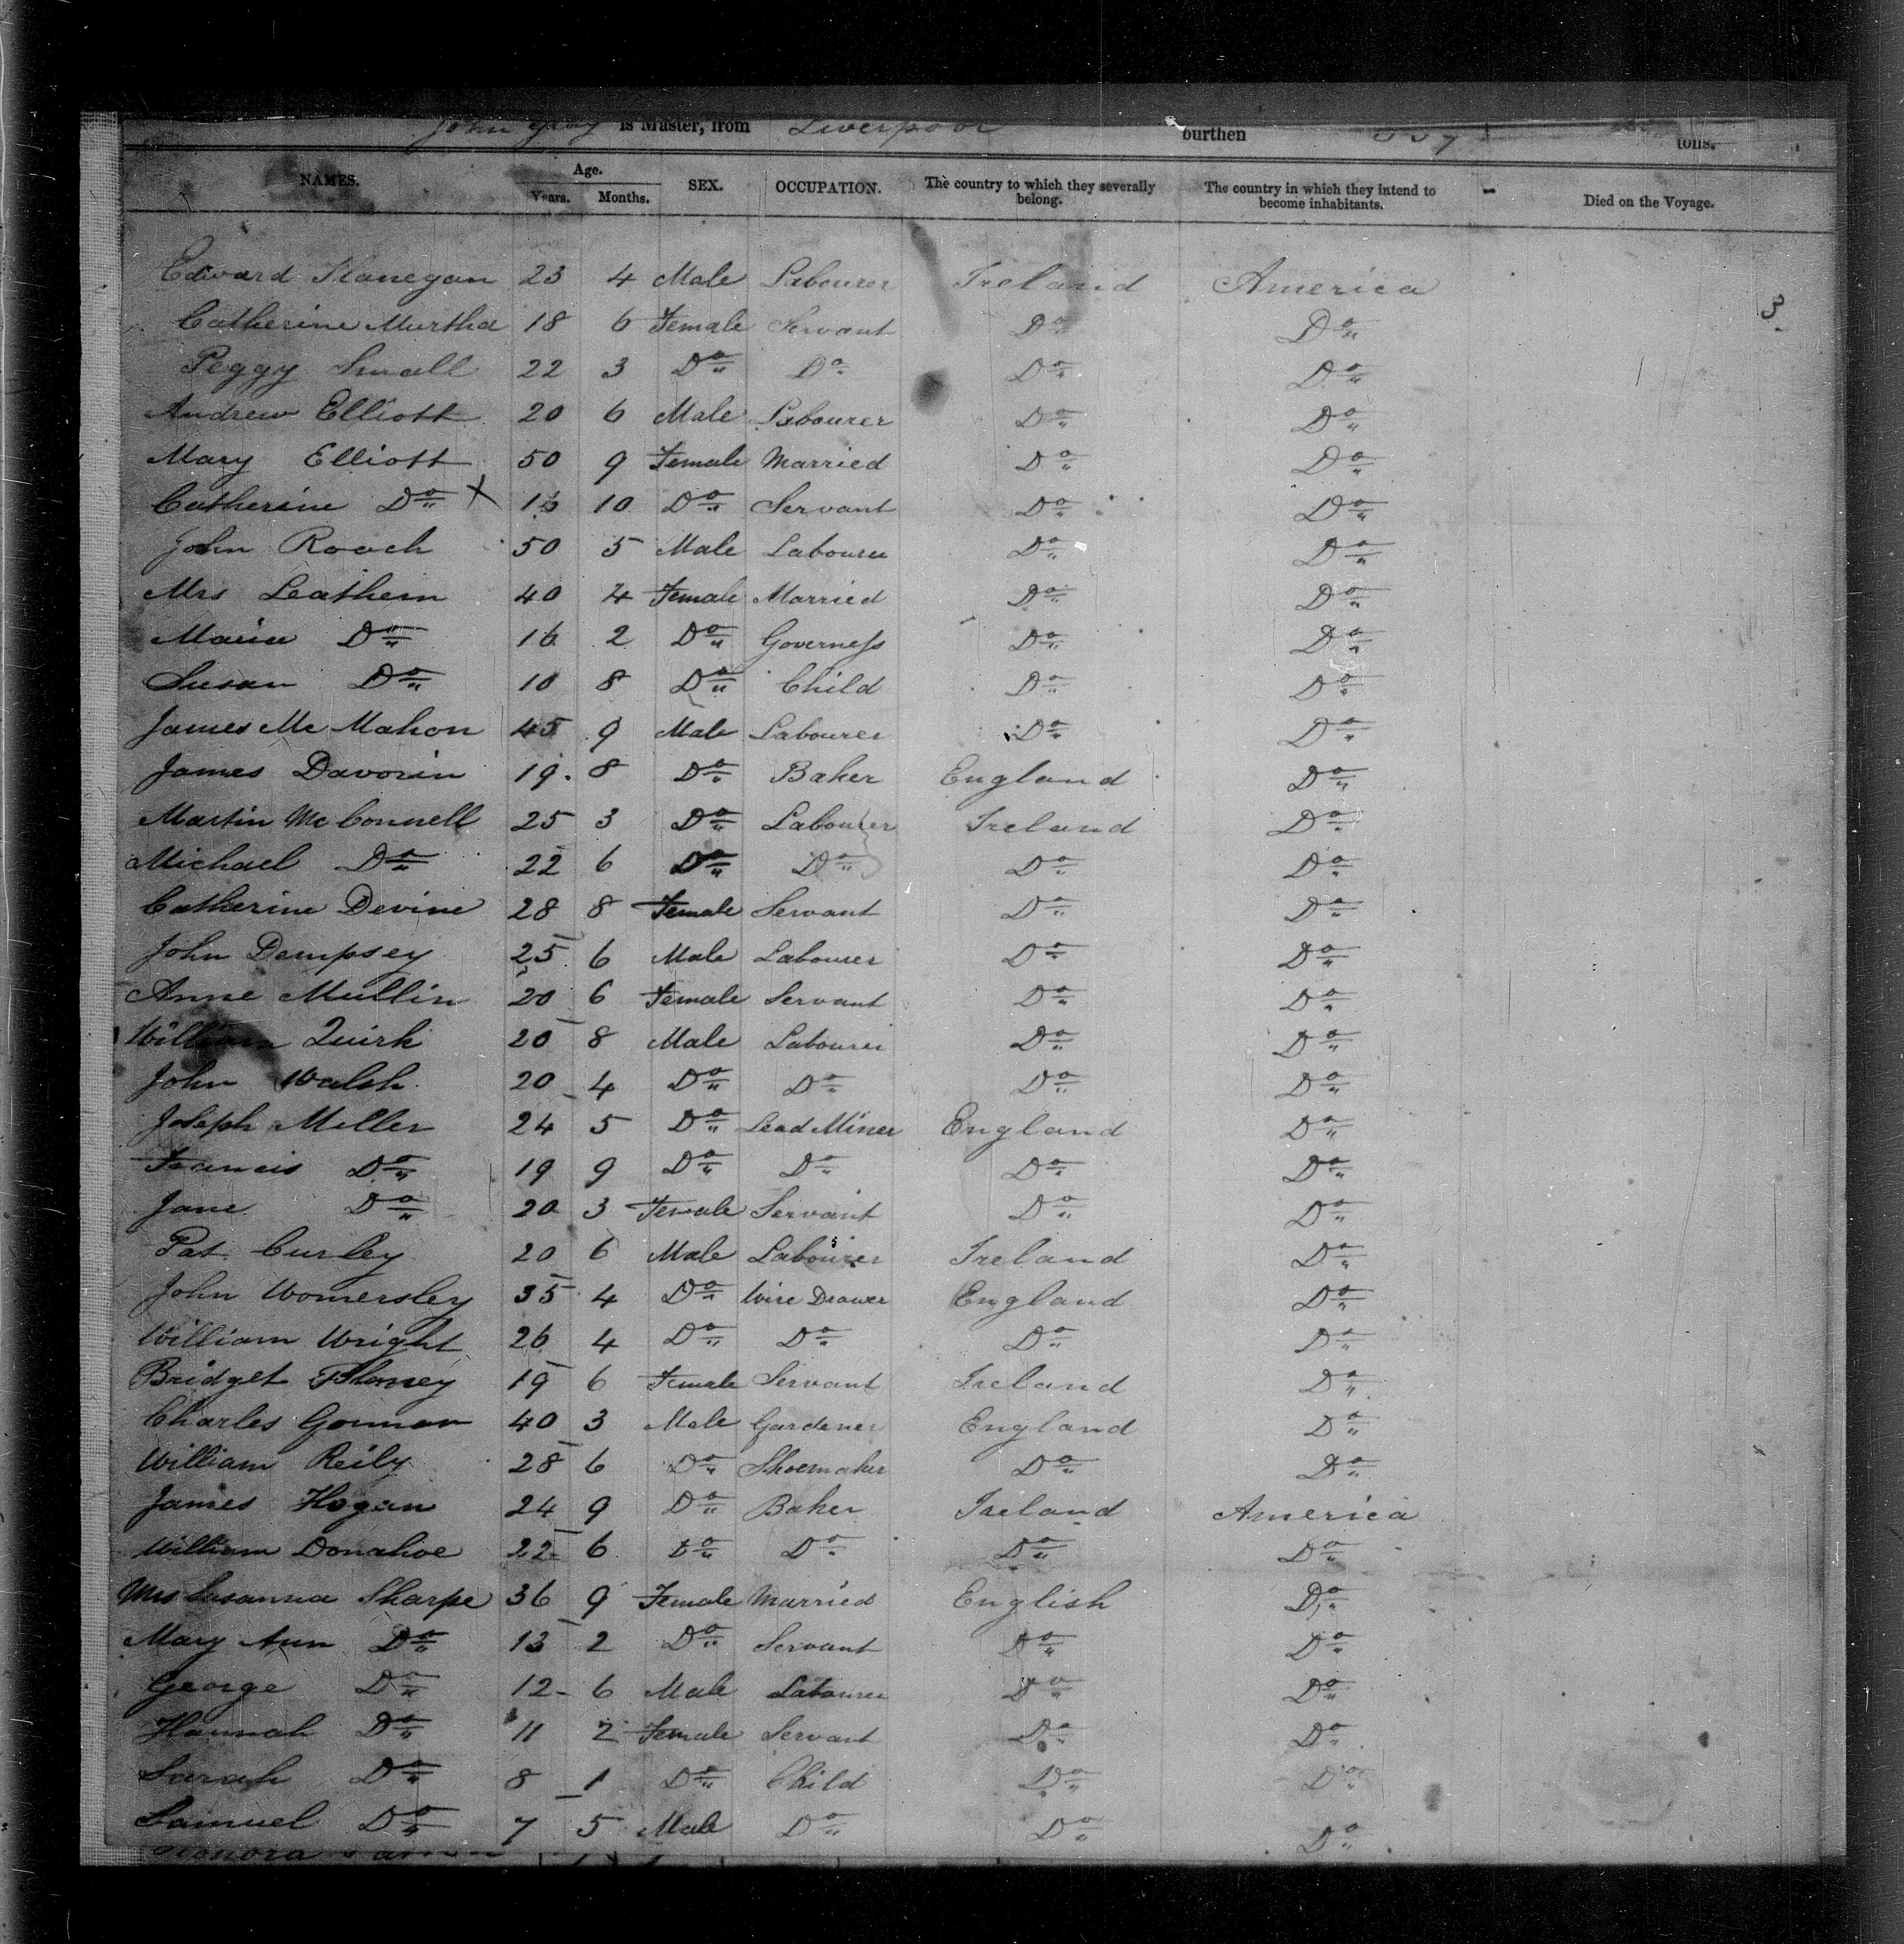 John Gray is Master, from Liverpool burthen tons.
NAMES. Age. Years. Months. SEX. OCCUPATION. The country to which they severally belong. The country in which they intend to become inhabitants. Died on the Voyage.
Edward Flanegan 23 4 Male Labourer Ireland America
3
Catherine Murtha 18 6 Female Servant Do Do
Peggy Small 22 3 Do Do Do Do
Andrew Elliott 20 6 Male Labourer Do Do
Mary Elliott 50 9 Female Married Do Do
Catherine Do X 10 Do Servant Do Do
John Rooch 50 5 Male Labourer Do Do
Mrs Leathem 40 4 Female Married Do Do
Maria Do 16 2 Do Governess Do Do
Susan Do 10 8 Do Child Do Do
James Mc Mahon 45 9 Male Labourer Do Do
James Davorin 19 8 Do Baker England Do
Martin Mc Connell 25 3 Do Labourer Ireland Do
Michael Do 22 6 Do Do Do Do
Catherine Devine 28 8 Female Servant Do Do
John Dempsey 25 6 Male Labourer Do Do
Anne Mullin 20 6 Female Servant Do Do
William Quirk 20 8 Male Labourer Do Do
John Walsh 20 4 Do Do Do Do
Joseph Miller 24 5 Do Lead Miner England Do
Francis Do 19 9 Do Do Do Do
Jane Do 20 3 Female Servant Do Do
Pat Curley 20 6 Male Labourer Ireland Do
John Womersley 35 4 Do Wire Drawer England Do
William Wright 26 4 Do Do Do Do
Bridget 19 6 Female Servant Ireland Do
Charles Gorman 40 3 Male Gardener England Do
William Reily 28 6 Do Shoemaker Do Do
James Hogan 24 9 Do Baker Ireland America
William Donahoe 22 6 Do Do Do Do
Mrs Susanna Sharpe 36 9 Female Married English Do
Mary Ann Do 13 2 Do Servant Do Do
George Do 12 6 Male Labourer Do Do
Hannah Do 11 2 Female Servant Do Do
Sarah Do 8 1 Do Child Do Do
Samuel Do 7 5 Male Do Do Do